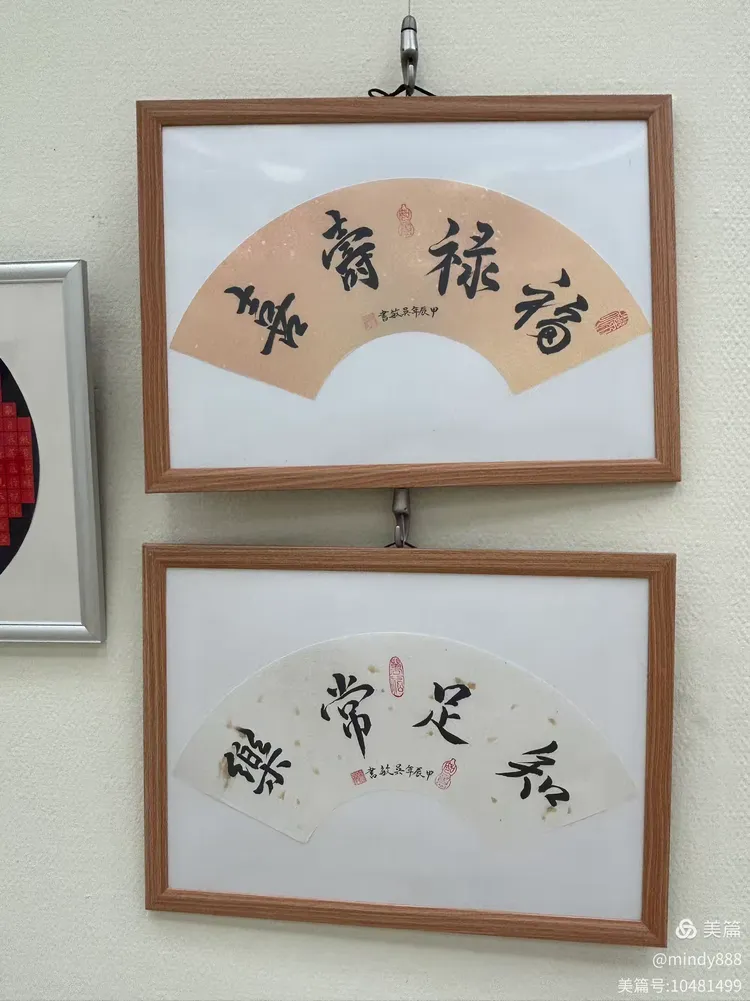 福禄寿喜
甲辰年吴敏书
知足常樂
甲辰年吴敏书
美篇
@mindy888
美篇号:10481499